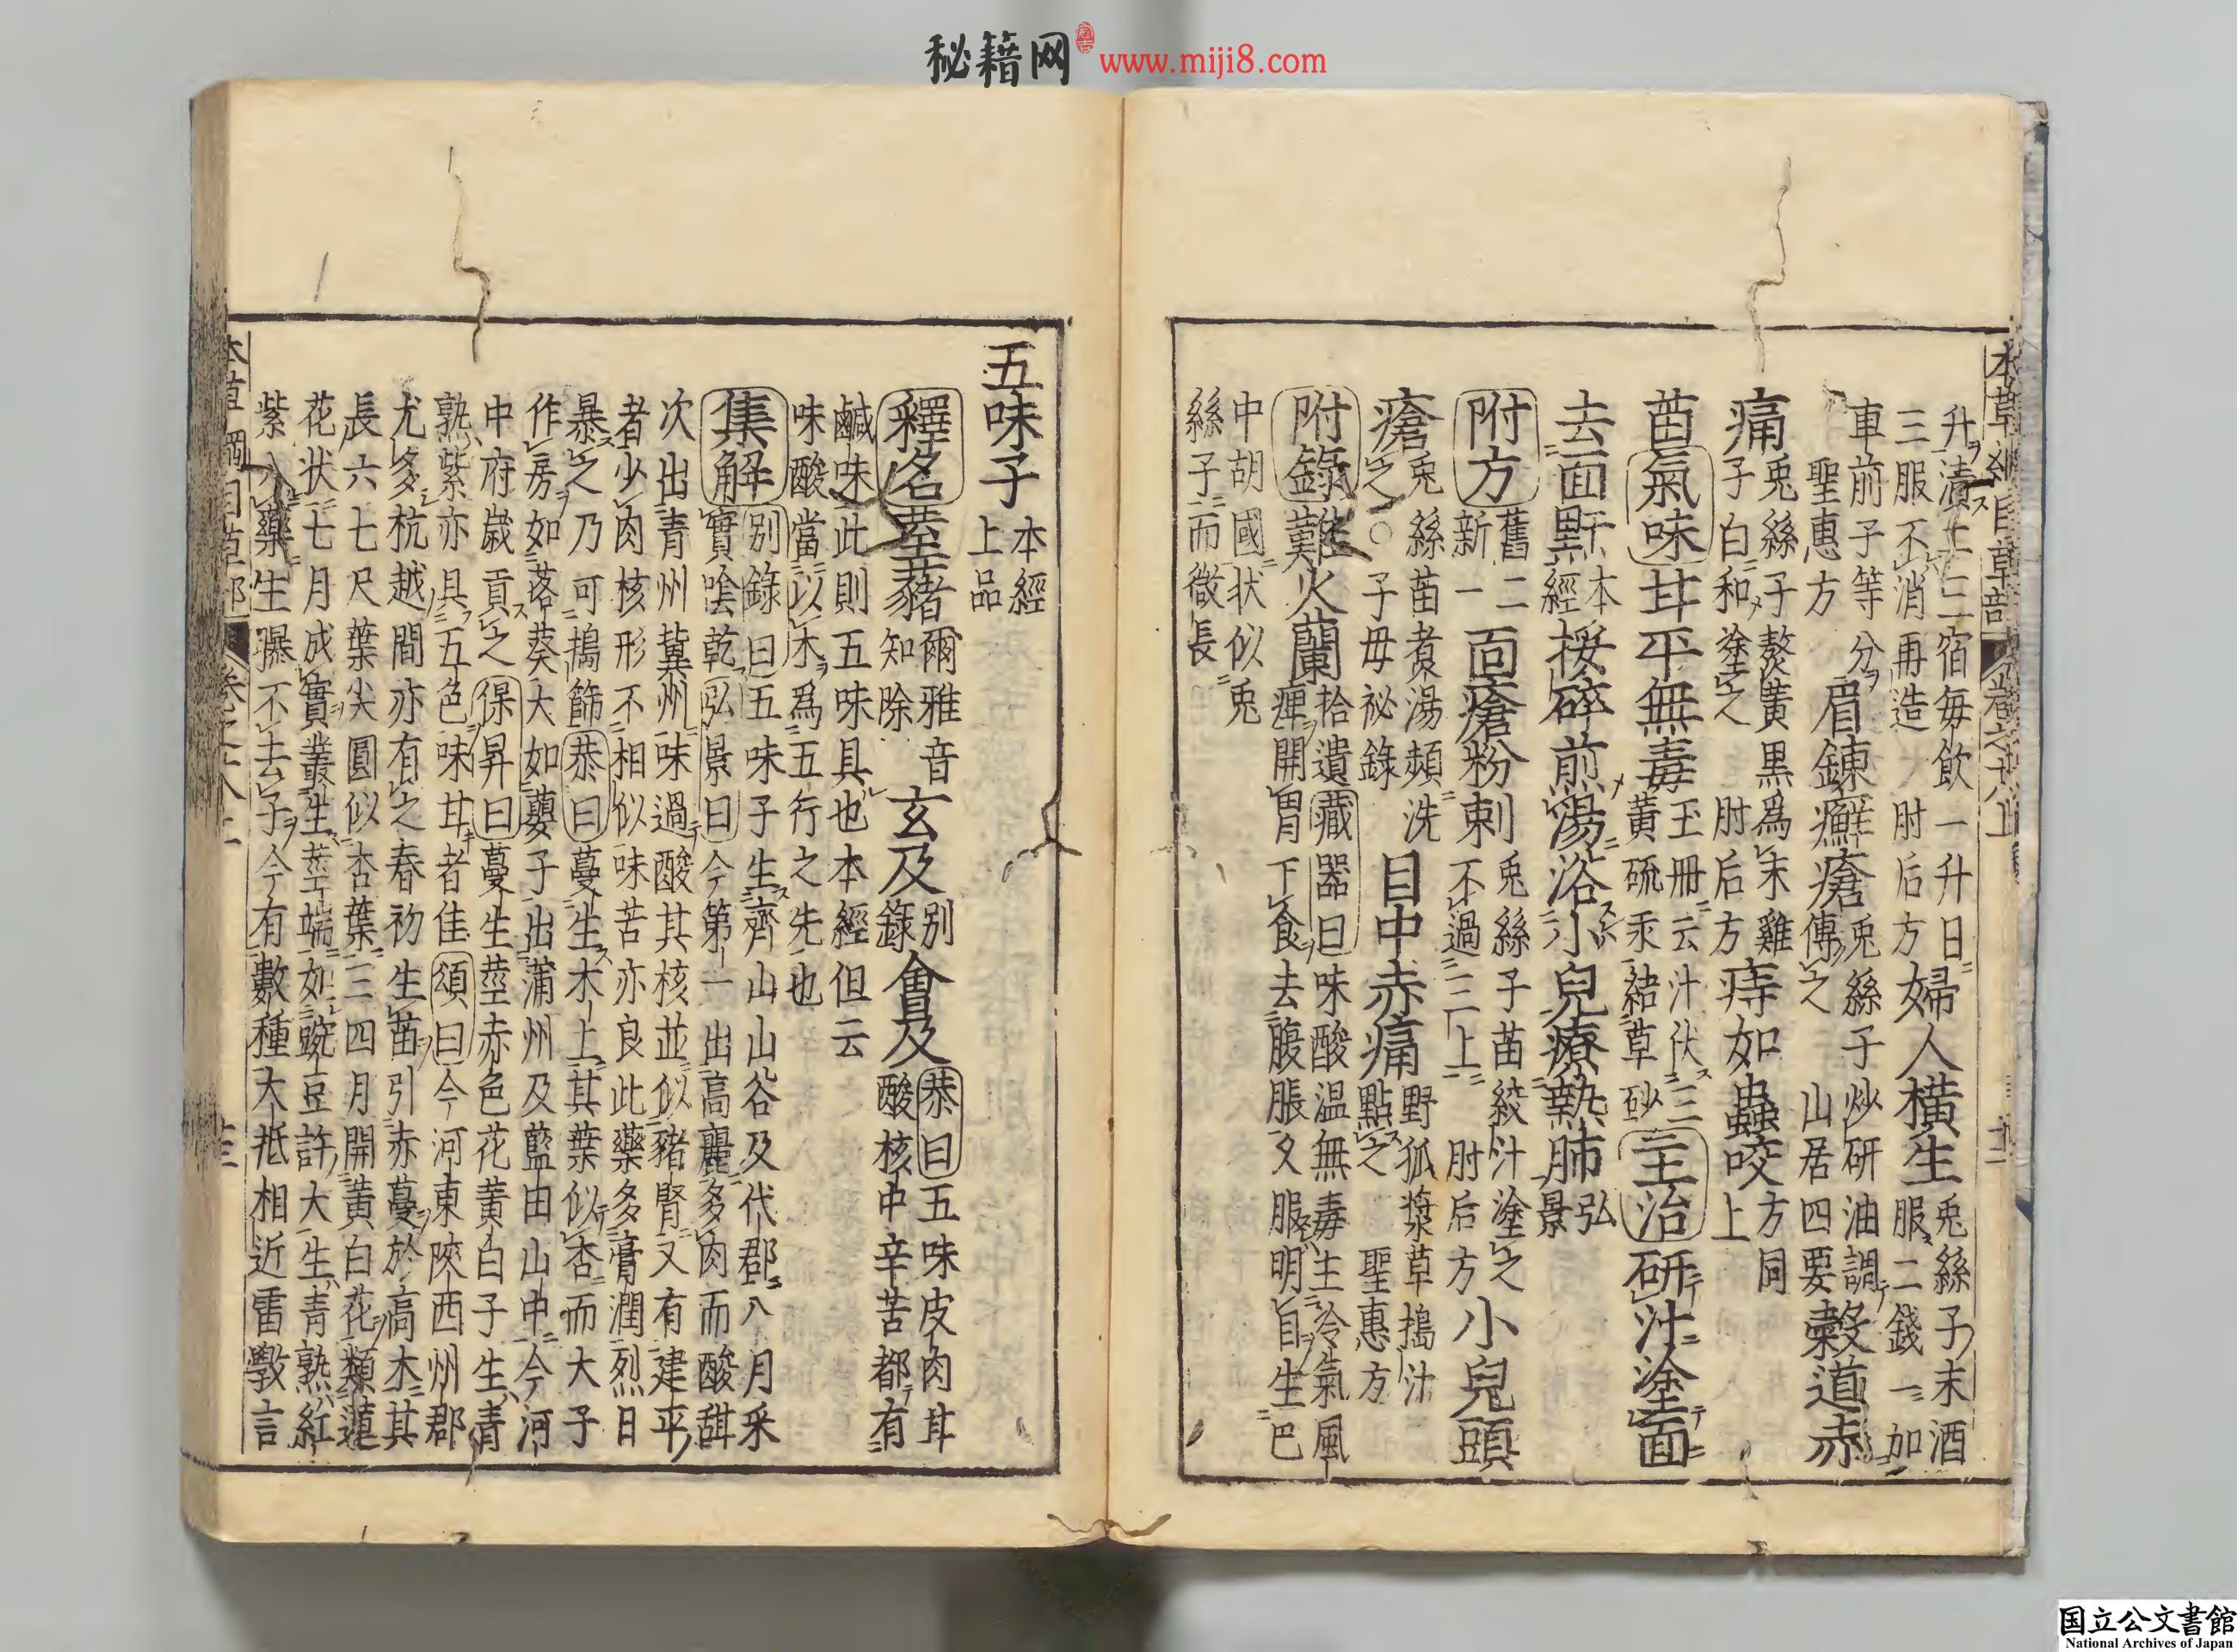 秘籍网 www.miji8.com
升漬二三宿每飲一升日
三服不消再造 肘后方
婦人橫生
兎絲子末酒
服二錢一加
車前子等分
聖惠方
眉鍊癬瘡
兎絲子炒研油調
傅之 山居四要
穀道赤
痛
兎絲子熬黃黑爲末雞
子白和塗之 肘后方
痔如蟲咬
方同
上
苗氣味甘平無毒
玉冊云汁伏三
黃硫汞結草砂
主治研汁塗面
去面䵟
本
經
挼碎煎湯浴小兒療熱肺
弘
景
附方
舊二
新一
面瘡粉刺
兎絲子苗絞汁塗之
不過三上 肘后方
小兒頭
瘡
兎絲苗煮湯頻洗
之○子母祕錄
目中赤痛
野狐漿草搗汁
點之 聖惠方
附錄難火蘭
拾遺藏器曰味酸温無毒主冷氣風
痺開胃下食去腹脹久服明目生巴
中胡國状似兎
絲子而微長
五味子
本經
上品
釋名荎藸
爾雅音
知除
玄及
別
錄
會及
恭曰五味皮肉甘
酸核中辛苦都有
鹹味此則五味具也本經但云
味酸當以木爲五行之先也
集解
別錄曰五味子生齊山山谷及代郡八月采
實陰乾弘景曰今第一出高麗多肉而酸甜
次出青州冀州味過酸其核並似豬腎又有建平
者少肉核形不相似味苦亦良此藥多膏潤烈日
暴之乃可搗篩恭曰蔓生木上其葉似杏而大子
作房如落葵大如蘡子出蒲州及藍田山中今河
中府歲貢之保昇曰蔓生莖赤色花黃白子生青
熟紫亦具五色味甘者佳頌曰今河東陝西州郡
尤多杭越間亦有之春初生苗引赤蔓於高木其
長六七尺葉尖圓似杏葉三四月開黃白花類蓮
花状七月成實叢生莖端如豌豆許大生青熟紅
紫入藥生曝不去子今有數種大抵相近雷斅言
国立公文書館
National Archives of Japan